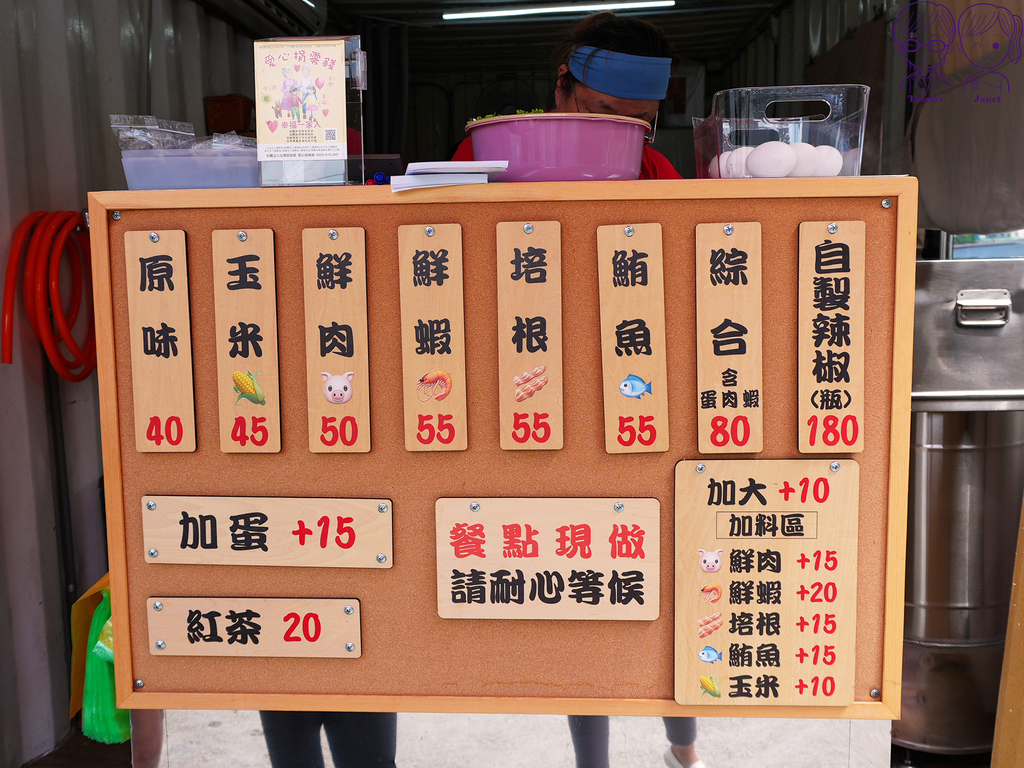 愛心捐零錢
幸福一家人
Janet
原味
40
玉米
45
鮮肉
50
鮮蝦
55
培根
55
鮪魚
55
綜合
含
蛋肉蝦
80
自製辣椒
(瓶)
180
加蛋 +15
紅茶 20
餐點現做
請耐心等候
加大 +10
加料區
鮮肉 +15
鮮蝦 +20
培根 +15
鮪魚 +15
玉米 +10